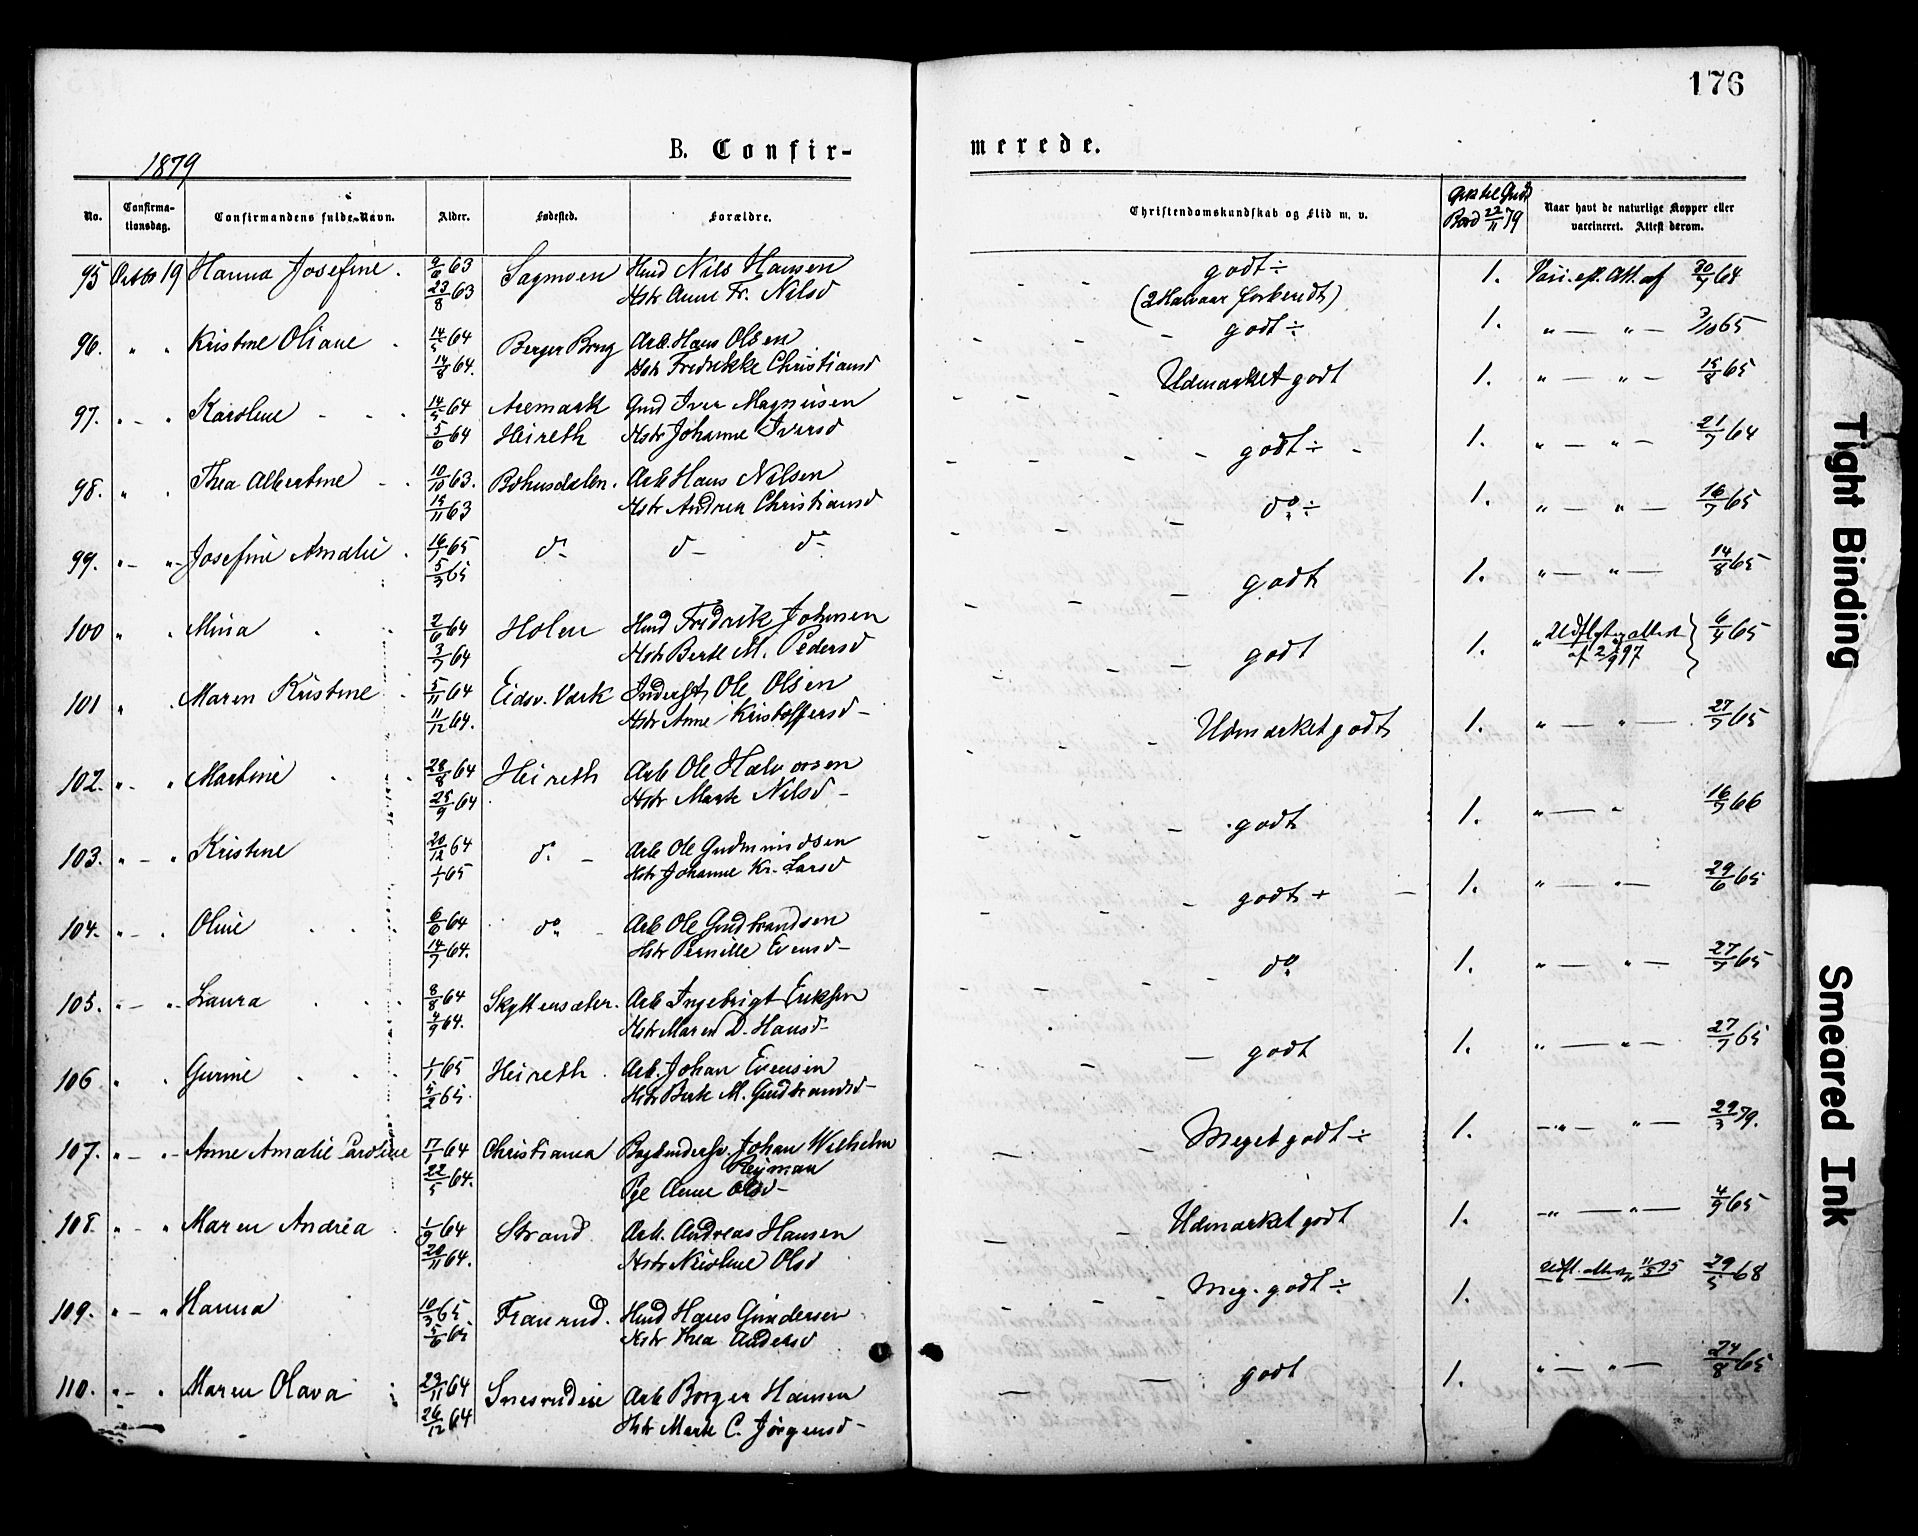 176
B. Confir-
merede.
1879
No.
Confirma-
tionsdag.
Confirmandens fulde Navn.
Alder.
Fødested.
Forældre.
Christendomskundskab og Flid m. v.
Bord 22/11 79
Naar havt de naturlige Kopper eller
vaccineret. Attest derom.
95 Octbr 19 Hanna Josefine. 63 Sagmoen Husmd Nils Hansen godt ÷ 1. Vacc. eft. Att. af 64
23/8 63 Hstr Anne Fr. Nilsd (2 Halvaar forberedt)
96. " " Kristine Oliane 14/5 64 Berger Brug Arb. Hans Olsen godt ÷ 1. " — " — 65
14/8 64. Hstr Fredrikke Christiansd
97. " - " Karoline - - - 14/5 64 Aremark Gmd Iver Magnusen Udmærket godt 1. " — " — 15/8 65
5/6 64 Heireth Hstr Johanne Iversd
98. " " Thea Albertine - - 10/10 63. Bøhnsdalen. Arb Hans Nilsen godt ÷ 1. " — " — 21/7 64
15/11 63 Hstr Andrea Christiansd
99. " - " - Josefine Amalie. 16/1 65 do do do do ÷ 1. " — " — 16/7 65
5/3 65
100 " " Mina 2/6 64 Holen Husmd Fredrik Johnsen godt 1. " — " — 14/8 65
3/7 64 Hstr Berte M. Pedersd
101 " " Maren Kristine 5/11 64 Eidsv. Værk Inderst Ole Olsen godt 1. " 6/4 65
11/12 64. Hstr Anne Kristoffersd -
102. " - " Martine 28/8 64 Heireth Arb Ole Halvorsen Udmærket godt 1. " — " — 27/7 65
25/9 64 Hstr Marte Nilsd -
103. " - " Kristine 20/12 64 do - Arb Ole Gudmundsen godt 1. " — " 16/7 66
1/1 65 Hstr Johanne Kr. Larsd
104. " - " Oline 6/6 64 do - Arb Ole Gudbrandsen godt + 1. " — " — 29/6 65
14/7 64. Hstr Pernille Evensd -
105. " - " - Laura 8/8 64 Skyttensæter. Arb Ingebrigt Eriksen do 1. " — " — 27/7 65
4/9 64. Hstr Maren D. Hansd -
106 " " Gurine 1/1 65 Heireth Arb. Johan Evensen godt 1. " — " — 27/7 65
5/2 65. Hstr Berte M. Gudbrandsd -
107. " - " - Anne Amalie Caroline 17/1 64 Christiania Johan Wilhelm Meget godt ÷ 1. - " — " — 29/3 79.
22/5 64. Reyman
Pge Anne Olsd -
108. " - " Maren Andrea 64 Strand Arb. Andreas Hansen Udmærket godt 1. - " — " — 4/9 65
20/11 64. Hstr Nicoline Olsd
109. " - " Hanna 10/3 65 Franrud. Husmd Hans Gundersen Meg. godt ÷ 1. Udfl. 11/3 95 29/5 68
5/6 65 Hstr Thea Andersd
110. " - " Maren Olava 23/11 64 Snesrudeie Arb Borger Hansen godt 1. " — " — 24/8 65
26/12 64 Hstr Marte C. Jørgensd -
Tight Binding
Smeared Ink